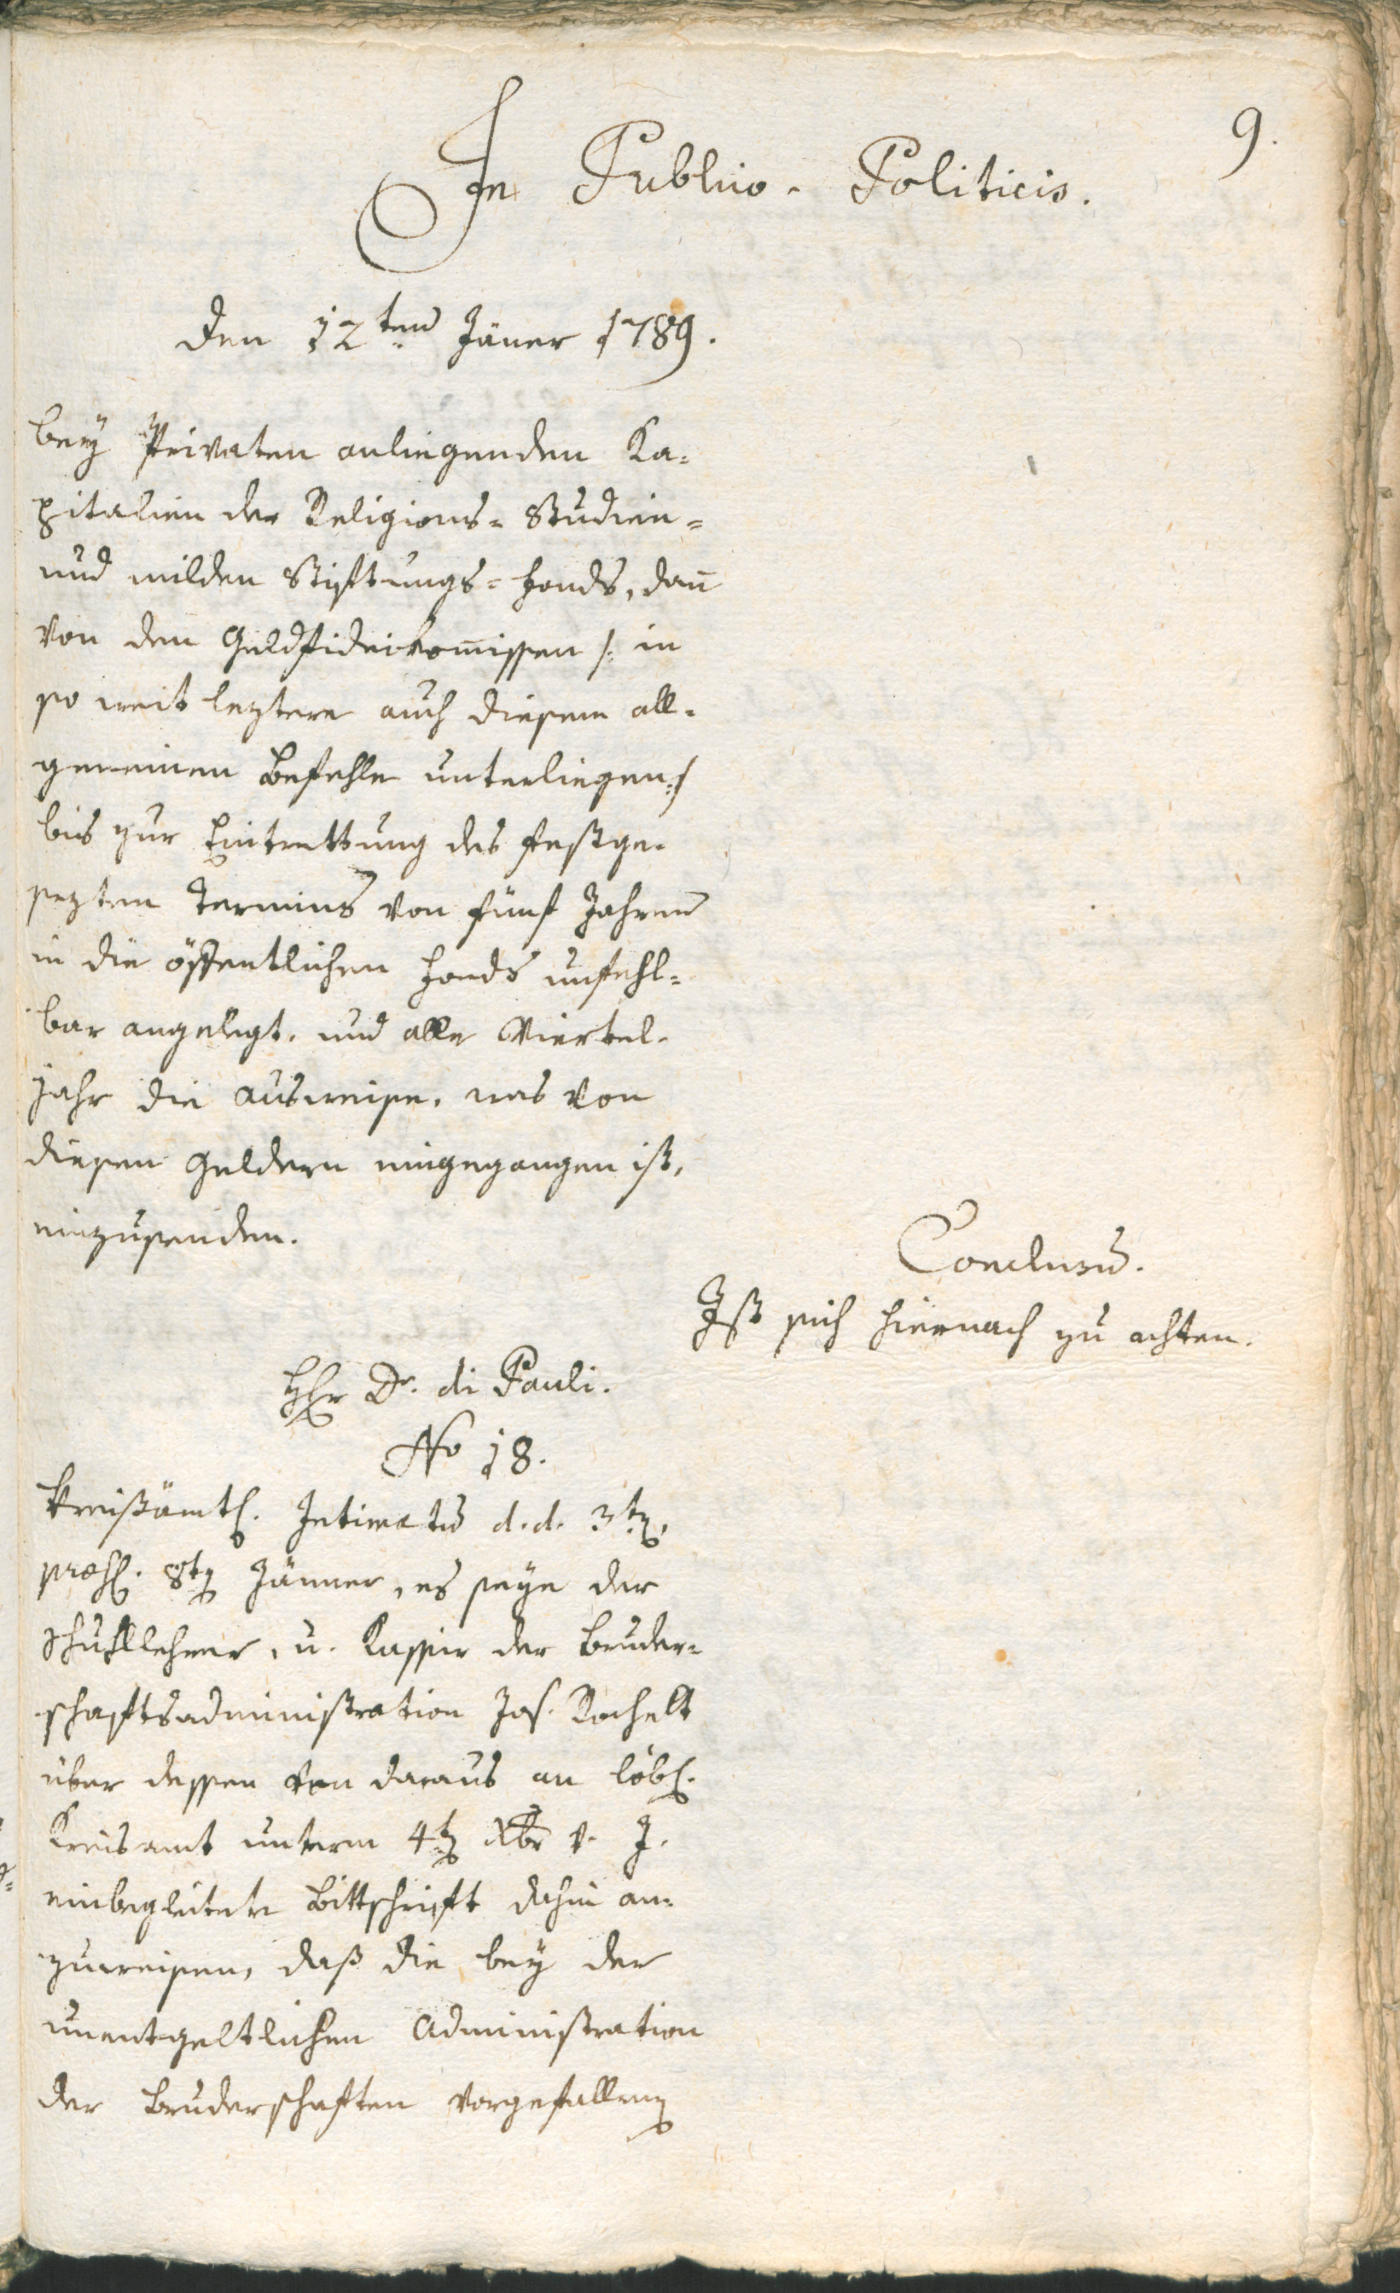 9.
In Publico-Politicis.
den 12ten Jäner 1789.
bey Privaten anliegenden Ka-
pitalien der Religions- Studien-
und milden Stiftungs-Fonds, dann
von den Geldfideikomissen /: in
so weit leztere auch diesem all-
gemeinen Befehle unterliegen :/
bis zur Eintrettung des festge-
sezten Termins von fünf Jahren
in die öffentlichen Fonds unfehl-
bar angelegt, und alle Viertel-
jahr die Ausweise, was von
diesen Geldern eingegangen ist,
einzusenden.
Conclusum.
Ist sich hiernach zu achten.
Hr Dr. di Pauli.
No 18.
Kreisämtl. Intimatum d. d. 3ten,
praes. 8ten Jänner, es seye der
Schullehrer, u. Kassier der Bruder-
schaftsadministration Jos. Rochelt
über dessen von daraus an löbl.
Kreisamt unterm 4ten Xbr v. J.
einbegleitete Bittschrift dahin an-
zuweisen, daß die bey der
unentgeltlichen Administration
der Bruderschaften vorgefallenen